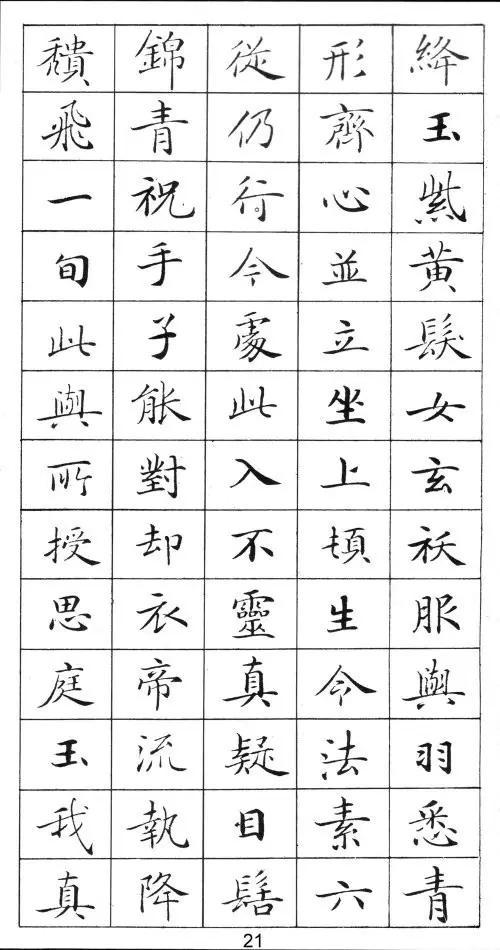 絳玉紫黃髮女玄祅服與羽悉青
形齊心並立坐上頓生今法素六
從仍行今處此入不靈真疑目髻
錦青祝手子能對却衣帝流執降
穨飛一旬此與所授思庭玉我真
21